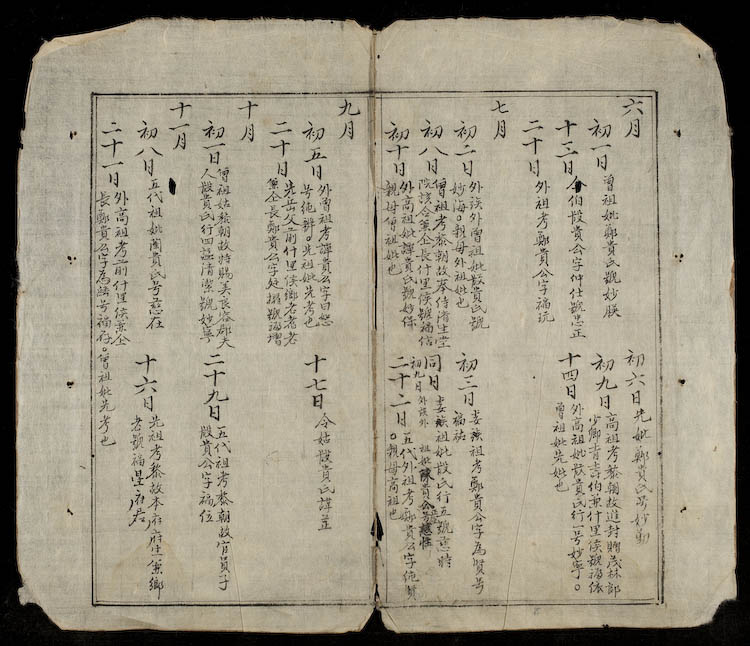 六月
初一日 曾祖妣鄭貴氏號妙朕
初六日先妣鄭貴氏号妙勤
十三日 令伯段貴公字仲仕號忠正
初九日 高祖考黎朝故進封贈茂林郎
少卿青吉伯兼什里侯號福依
二十日 外祖考鄭貴公字福玩
十四日 外高祖妣段貴氏行一号妙寧。
曾祖妣先妣也
七月
初二日 外族外曾祖妣段貴氏號
妙海。親母外祖妣也
初三日 妻族祖考鄭貴公字為賢号
福祐
初八日 曾祖考黎朝故奉侍済生堂
院該合兼企長什里侯號福信
同日 妻族祖妣段貴氏行五號慈時
初九日外族外
祖妣陳貴公号慈性
初十日 外高祖妣譚貴氏號妙保
親母曾祖妣也
二十二日 五代外祖考鄭貴公字純賢
。親母高祖也
九月
初五日 外曾祖考譚貴公字曰慾
号純辨。先祖妣先考也
十七日 令姑段貴氏諱並
二十日 先岳父前什里侯鄉老者老
兼企長鄭貴公字廷 號福增
十月
初一日 曾祖姑黎朝故特賜美良 郡夫
人段貴氏行四謚清潔號妙寧
二十九日 五代祖考黎朝故官員子
段貴公字福位
十一月
初八日 五代祖妣阮貴氏号慈在
十六日 先祖考黎故本府府生兼鄉
老號福 府君
二十一日 外高祖考前什里侯兼企
長鄭貴公字為麟号福存。曾祖妣先考也